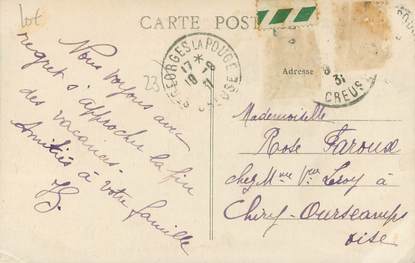 lot
CARTE POST
GEORGES LA POUGE
17 * 8
31
CREUSE
23
Adresse
CREUSE
31
Nous voyons avec
regret s'approcher la fin
des vacances.
Amitiés à votre famille
Mademoiselle
Rose Faroux
chez Mme Vve Leroy à
Chiry-Ourscamps
oise